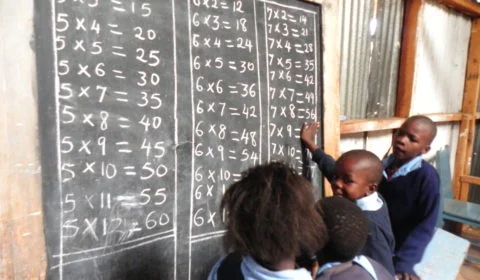 5 x 3 = 15
5 x 4 = 20
5 x 5 = 25
5 x 6 = 30
5 x 7 = 35
5 x 8 = 40
5 x 9 = 45
5 x 10 = 50
5 x 11 = 55
5 x 12 = 60
6 x 2 = 12
6 x 3 = 18
6 x 4 = 24
6 x 5 = 30
6 x 6 = 36
6 x 7 = 42
6 x 8 = 48
6 x 9 = 54
6 x 10 =
6 x 1
6 x 1
7 x 2 = 14
7 x 3 = 21
7 x 4 = 28
7 x 5 = 35
7 x 6 = 42
7 x 7 = 49
7 x 8 = 56
7 x 9 =
7 x 10